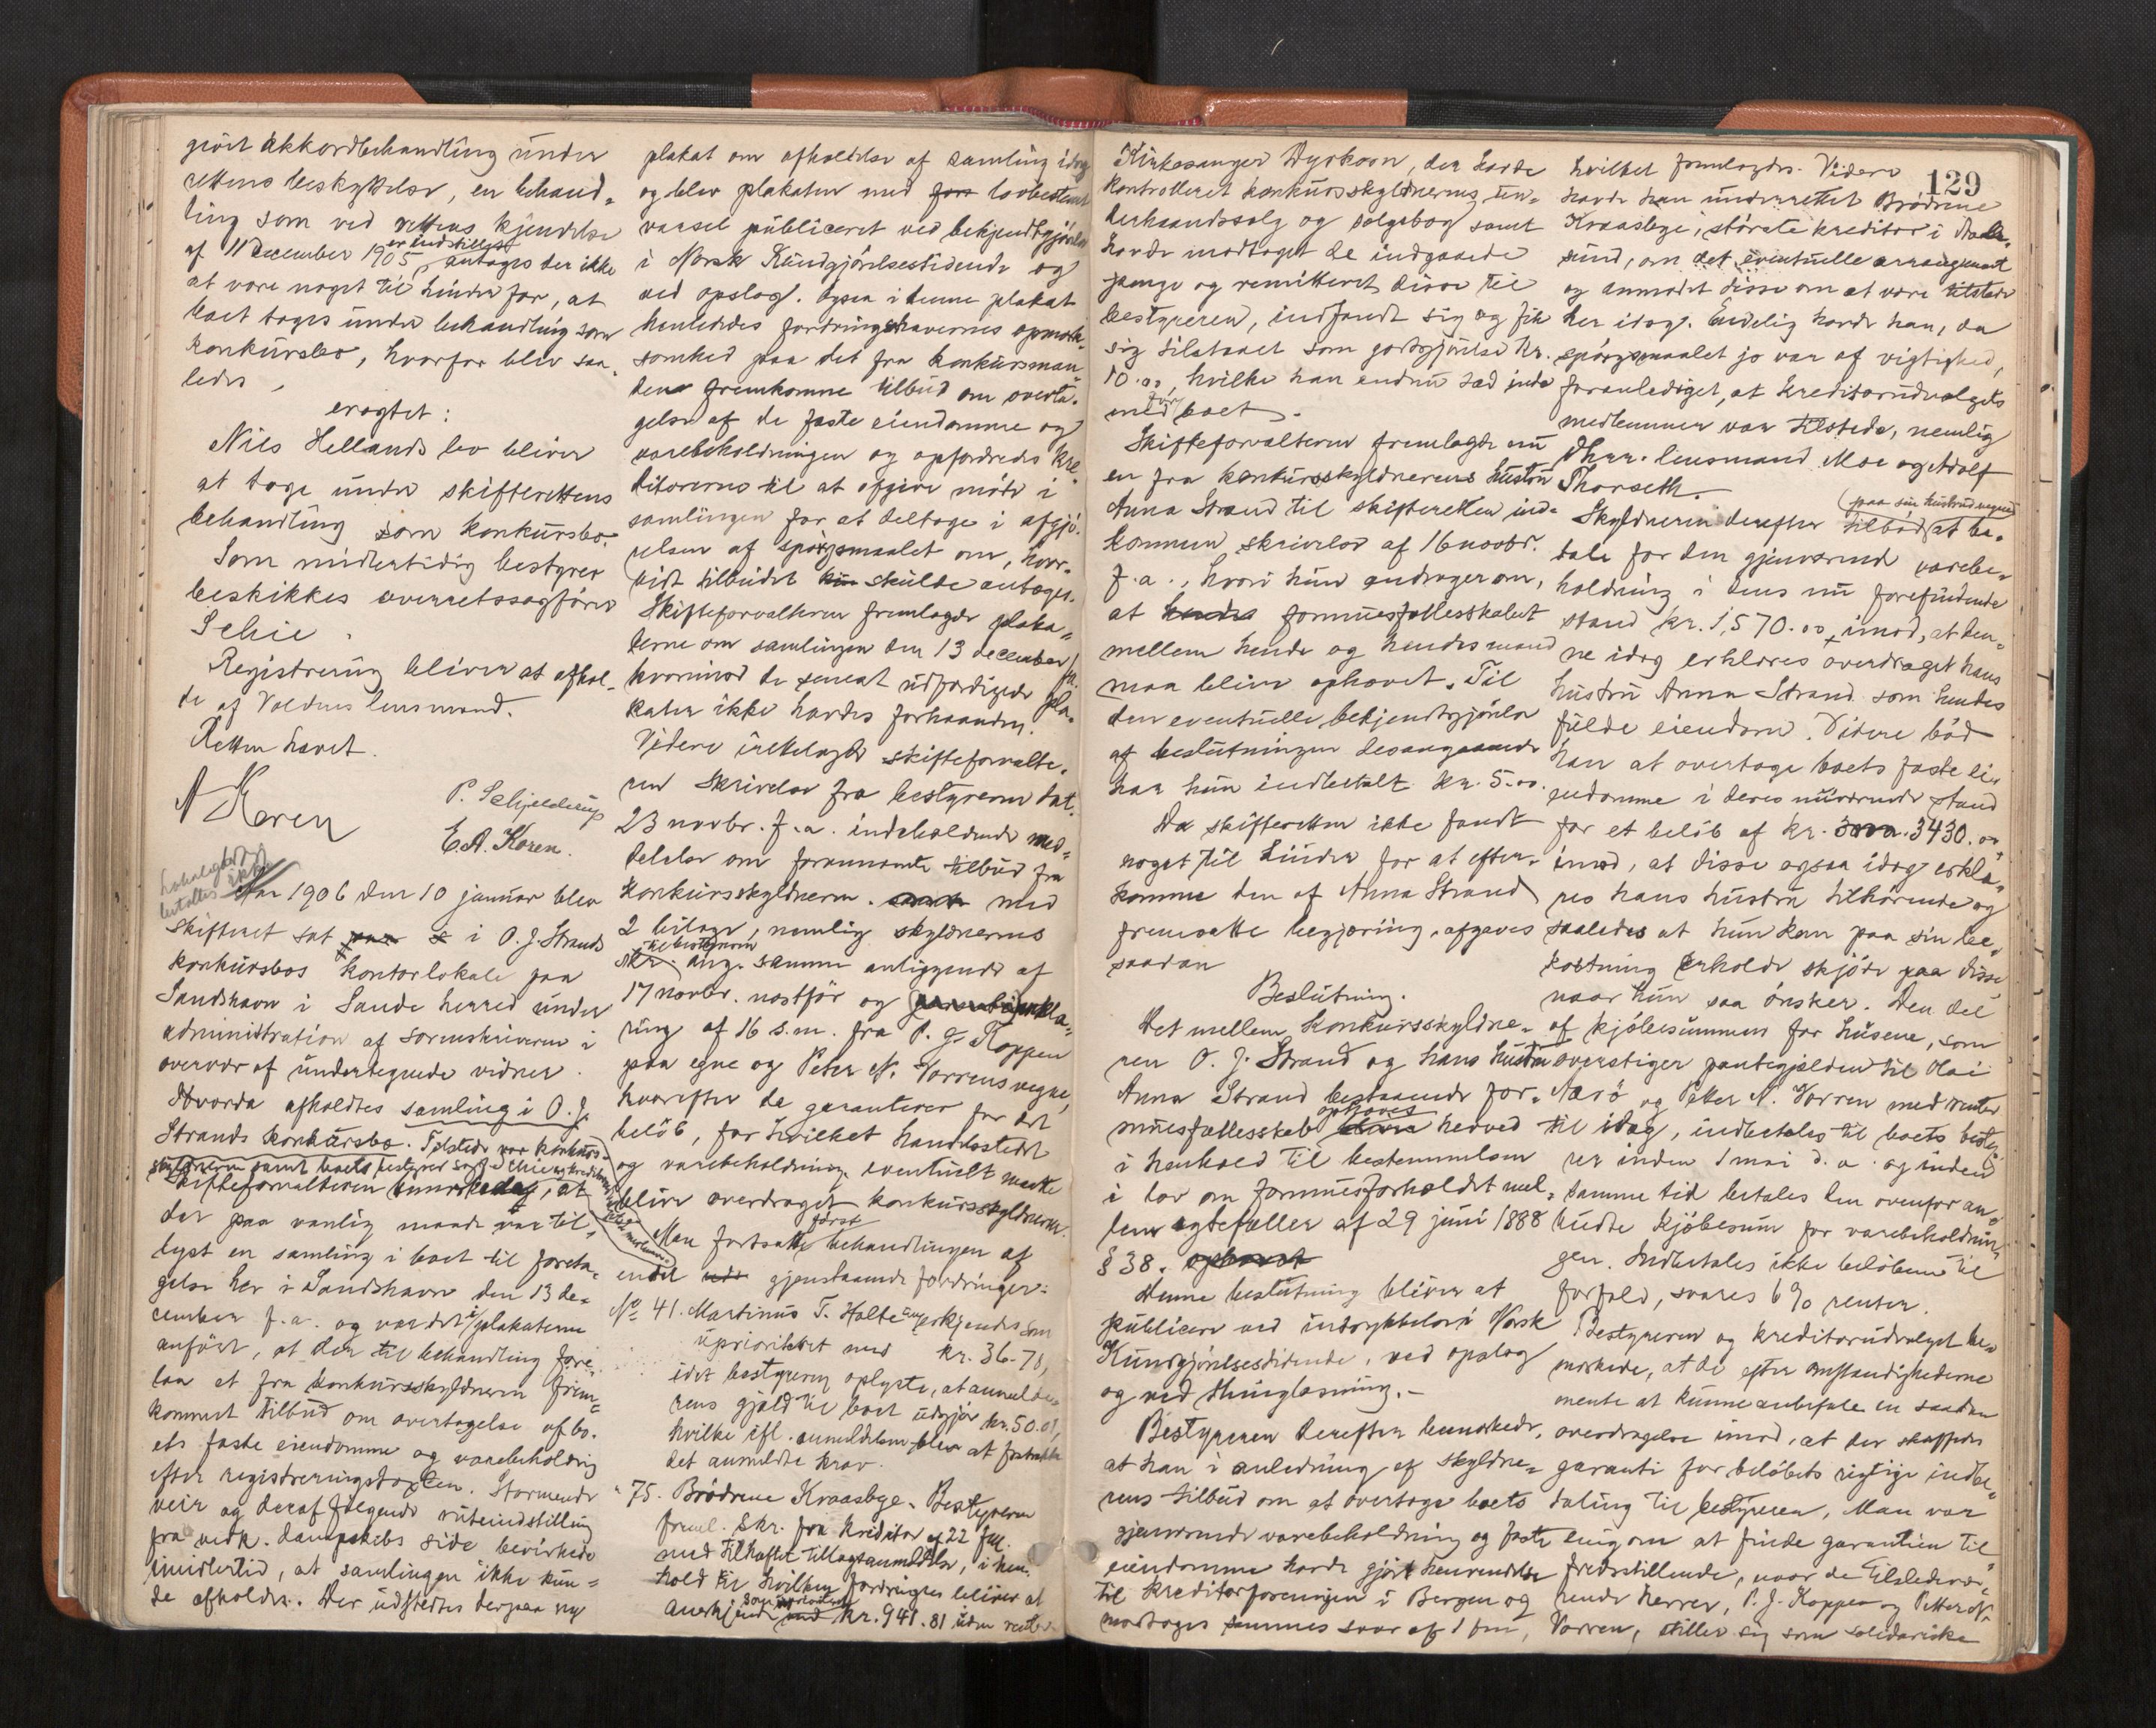 giört akkordbehandling under
rettens beskyttelse, en behand-
ling som ved rettens kjendelse
af 11 December 1905 er indstillet, antages der ikke
at være noget til hinder for, at
boet tages under behandling som
konkursbo, hvorfor blev saa-
ledes
eragtet:
Nils Hellands bo bliver
at tage under skifterettens
behandling som konkursbo.
Som midlertidig bestyrer
beskikkes overretssagfører
Schie.
Registrering bliver at afhol-
de af Voldens lensmand.
Retten hævet.
A Koren
P. Schjelderup
E.A. Koren.
betales ikke
Aar 1906 den 10 januar blev
skifteret sat i O. J. Strands
konkursbos kontorlokale paa
Sandshavn i Sande herred under
administration af sorenskriveren i
overvær af undertegnede vidner.
Hvorda afholdtes samling i O. J.
Strands konkursbo. Tilstede var konkurs-
skyldneren samt boets bestyrer Schie
Skifteforvalteren bemerkede, at
der paa vanlig maade var til-
lyst en samling i boet til foreta-
gelse her i Sandshavn den 13 de-
cember f.a. og var det i plakaterne
anført, at der til behandling fore-
laa et fra konkursskyldneren frem-
kommet tilbud om overtagelse af bo-
ets faste eiendomme og varebeholdning
efter registreringstaxten. Stormende
veir og deraf følgende ruteindstilling
fra vedk. dampskibs side bevirkede
imidlertid, at samlingen ikke kun-
de afholdes. Der udstedtes derpaa ny
plakat om afholdelse af samling idag
og blev plakaten med lovbestemt
varsel publiceret ved bekjendtgjørelse
i Norsk Kundgjørelsestidende og
ved opslag. Ogsaa i denne plakat
henlededes fordringshavernes opmærk-
somhed paa det fra konkursman-
den fremkomne tilbud om overta-
gelse af de faste eiendomme og
varebeholdningen og opfordredes kre-
ditorerne til at afgive møde i
samlingen for at deltage i afgjø-
relsen af spørgsmaalet om, hvor-
vidt tilbudet skulde antages.
Skifteforvalteren fremlagde plaka-
terne om samlingen den 13 december f.a.
hvorimod de senest udfærdigede pla-
kater ikke havdes forhaanden.
Videre irettelagde skifteforvalte-
ren skrivelse fra bestyreren dat.
23 novbr. f.a. indeholdende med-
delelse om forannævnte tilbud fra
konkursskyldneren med
2 bilage, nemlig skyldnerens
skr. til bestyreren ang. samme anliggende af
17 novbr. næstfør og erklæ-
ring af 16 s.m. fra P. J. Koppen
paa egne og Peter N. Vorrens vegne,
hvorefter de garanterer for det
beløb, for hvilket handelsstedet
og varebeholdning eventuelt maatte
blive overdraget konkursskyldneren.
Man fortsatte først behandlingen af
endel gjenstaaende fordringer:
No 41. Martinus T. Holte anerkjendes som
uprioritetet med kr. 36-78,
idet bestyreren oplyste, at anmelde-
rens gjæld til boet udgjør kr. 50.01,
hvilke ifl. anmeldelsen blev at fratrække
det anmeldte krav.
" 75. Brødrene Kraasbye. Bestyreren
freml. skr. fra kreditor af 22 f.m.
med tilhæftet tillægsanmeldelse, i hen-
hold til hvilken fordringen bliver at
anerkjende kr. 941.81 uden renter.
129
Kirkesanger Dyrkorn, der havde
kontrolleret konkursskyldnerens un-
derhaandssalg og salgsbog samt
havde modtaget de indgaaede
penge og remitteret disse til
bestyreren, indfandt sig og fik
sig tilstaaet som godtgjørelse kr.
10.00, hvilke han endnu sad inde
med for boet.
Skifteforvalteren fremlagde nu
en fra konkursskyldnerens hustru
Anna Strand til skifteretten ind-
kommen skrivelse af 16 novbr.
f.a., hvori hun andrager om,
at formuesfællesskabet
mellem hende og hendes mand
maa blive ophævet. Til
den eventuelle bekjendtgjørelse
af beslutningen desangaaende
har hun indbetalt kr. 5.00.
Da skifteretten ikke fandt
noget til hinder for at efter-
komme den af Anna Strand
fremsatte begjæring, afgaves
saadan
Beslutning.
Det mellem konkursskyldne-
ren O. J. Strand og hans hustru
Anna Strand bestaaende for-
muesfællesskab ophæves herved
i henhold til bestemmelsen
i lov om formuesforholdet mel-
lem ægtefæller af 29 juni 1888
§ 38.
Denne beslutning bliver at
publicere ved indrykkelse i Norsk
Kundgjørelsestidende, ved opslag
og ved thinglæsning.-
Bestyreren derefter bemærkede,
at han i anledning af skyldne-
rens tilbud om at overtage boets
gjenværende varebeholdning og faste
eiendomme havde gjort henvendelse
til kreditorforeningen i Bergen og
modtaget sammes svar af 1 dm,
hvilket fremlagdes. Videre
havde han underrettet Brødrene
Kraasbye, største kreditor i Aale-
sund, om det eventuelle arrangement
og anmodet disse om at være tilstede
her idag. Endelig havde han, da
spørgsmaalet jo var af vigtighed,
foranlediget, at kreditorudvalgets
medlemmer var tilstede, nemlig
dhrr. lensmand Moe og Adolf
Thorseth.
Skyldneren derefter tilbød paa sin hustrus vegne at be-
tale for den gjenværende varebe-
holdning i dens nu forefindende
stand kr. 1,570.00 imod, at den-
ne idag erklæres overdraget hans
hustru Anna Strand som hendes
fulde eiendom. Videre bød
han at overtage boets faste ei-
endomme i deres nuværende stand
for et beløb af kr. 3430.00
imod, at disse ogsaa idag erklæ-
res hans hustru tilhørende og
saaledes at hun kan paa sin be-
kostning erholde skjøde paa disse
naar hun saa ønsker. Den del
af kjøbesummen for husene, som
overstiger pantegjælden til Olai
Nærø og Petter N. Vorren med renter
til idag, indbetales til boets besty-
rer inden 1 mai d.a. og inden
samme tid betales den ovenfor an-
budte kjøbesum for varebeholdnin-
gen. Indbetales ikke beløbene til
forfald, svares 6% renter.
Bestyreren og kreditorudvalget be-
mærkede, at de efter omstændighederne
mente at kunne anbefale en saadan
overdragelse imod, at der skaffedes
garanti for beløbets rigtige indbe-
taling til bestyreren. Man var
enig om at finde garantien til-
fredsstillende, naar de tilstedevæ-
rende herrer, P. J. Koppen og Petter N.
Vorren, stiller sig som solidariske